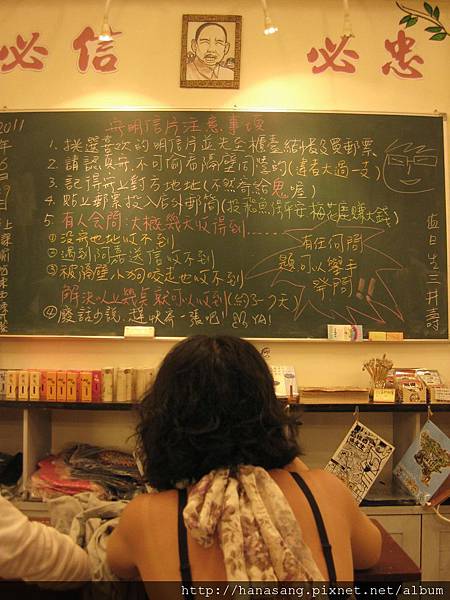 必信
必忠
2011
年
寄明信片注意事項
1. 挑選喜歡的明信片並先至櫃臺結帳及買郵票
2. 請認真寫不可偷看隔壁同學的(違者大過一支)
3. 記得寫上對方地址(不然會給鬼喔)
4. 貼上郵票投入店外郵筒
5. 有人會問:大概幾天收得到
① 沒寫地址收不到
② 遇到阿嘉送信收不到
③ 被隔壁小狗咬走也收不到
解決以上幾點就可以收到(約3~7天)
④ 廢話少說,趕快寄一張吧! YA!
有任何問
題可以舉手
發問!!
值日生三井壽
http://hanasang.pixnet.net/album